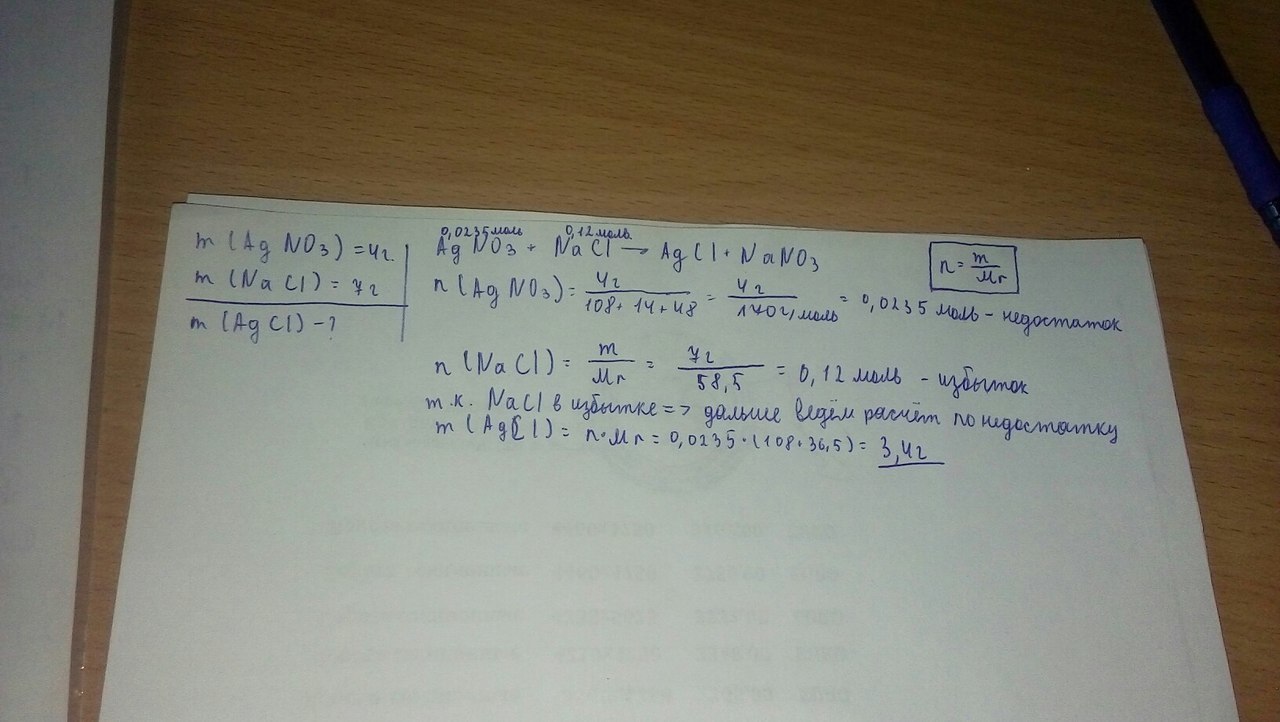 m (Ag NO3) = 4г
m (Na Cl) = 7г
m (Ag Cl) - ?
0,0235 моль 0,12 моль
Ag NO3 + Na Cl → Ag Cl + Na NO3
n = m/Mr
n (Ag NO3) = 4г/108 + 14 + 48 = 4г/170 г/моль = 0,0235 моль - недостаток
n (Na Cl) = m/Mr = 7г/58,5 = 0,12 моль - избыток
т.к. Na Cl в избытке => дальше ведём расчёт по недостатку
m (Ag Cl) = n · Mr = 0,0235 · (108 + 36,5) = 3,4г